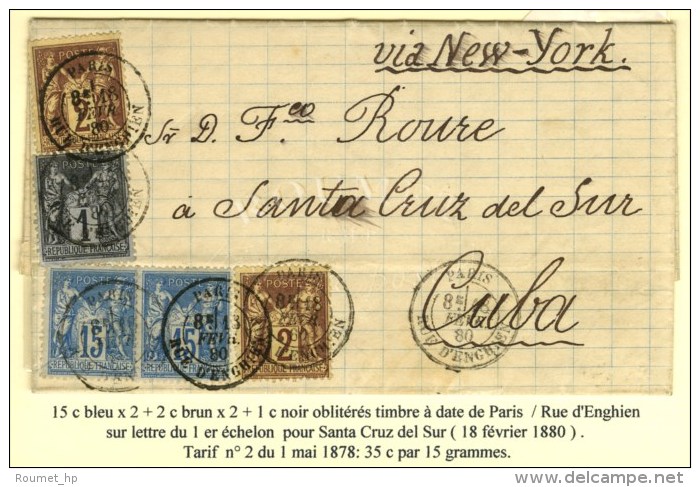 via New-York.
Sr D. Fco Roure
á Santa Cruz del Sur
Cuba
PARIS
RUE D'ENGHIEN
8E 18
FEVR.
80
POSTES
2
POSTES
1
REPUBLIQUE FRANÇAISE
POSTES
15
REPUBLIQUE FRANÇAISE
POSTES
15
REPUBLIQUE FRANÇAISE
PARIS
8E 18
FEVR.
80
RUE D'ENGHIEN
POSTES
2
REPUBLIQUE FRANÇAISE
PARIS
8E 18
FEVR.
80
RUE D'ENGHIEN
15 c bleu x 2 + 2 c brun x 2 + 1 c noir oblitérés timbre à date de Paris / Rue d'Enghien
sur lettre du 1 er échelon pour Santa Cruz del Sur ( 18 février 1880 ) .
Tarif n° 2 du 1 mai 1878: 35 c par 15 grammes.
Roumet_hp
delcampe.net